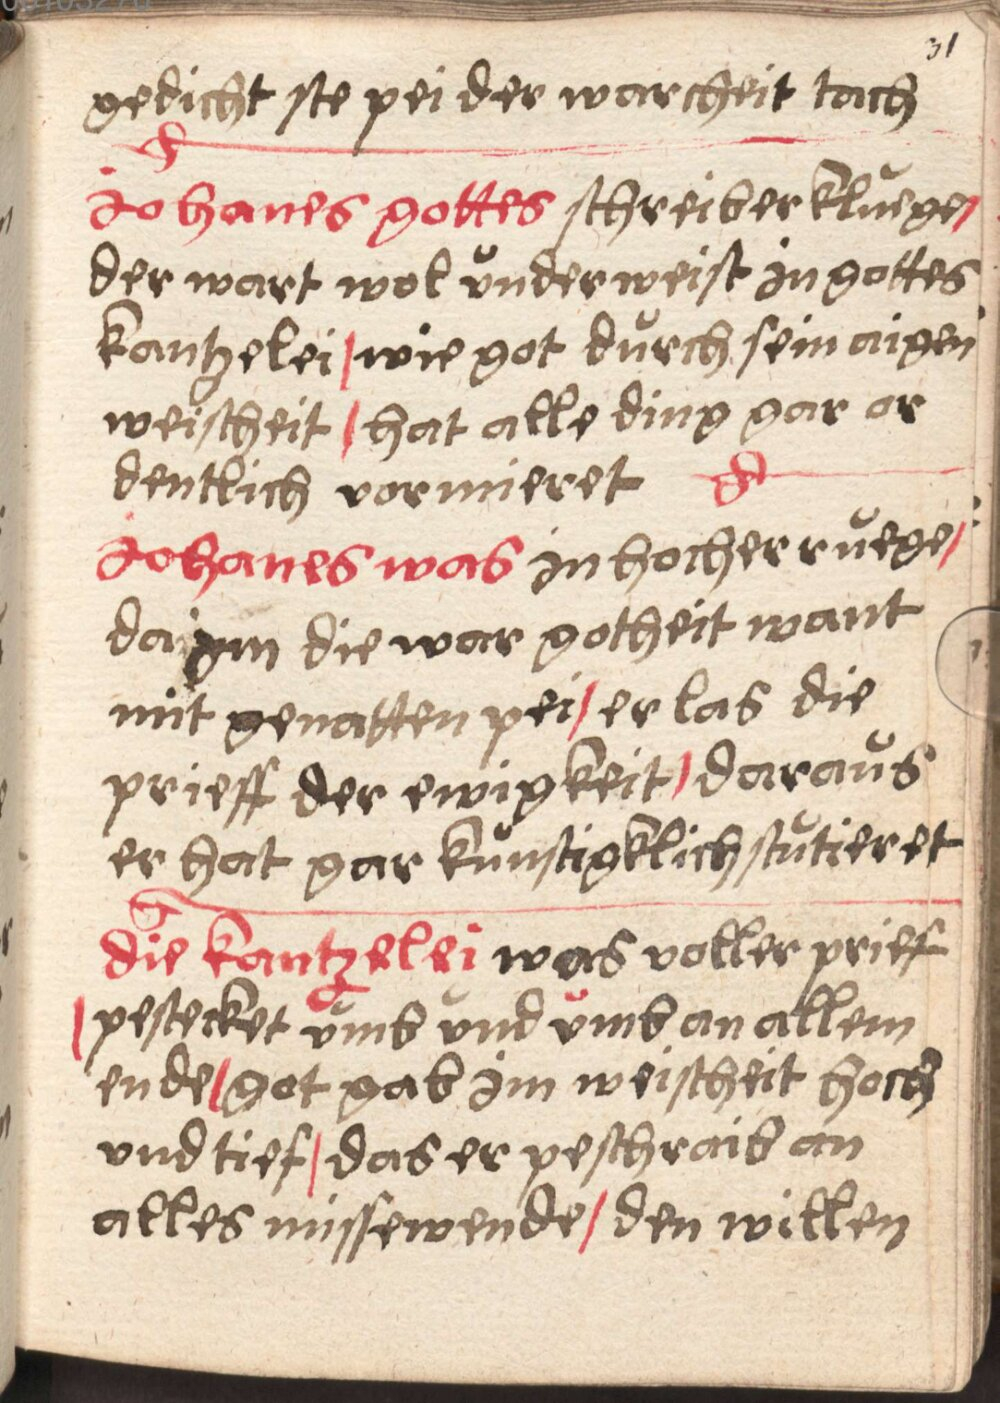 31
gedicht ste pei der warcheit tach
Johanes gottes schreiber kluege /
der wart wol underweist in gottes
kantzelei / wie got durch sein aigen
weischeit / hat alle ding gar or
dentlich vormieret
Johanes was in hocher ruege /
da im die war gotheit want
mit genatten pei / er las die
prieff der ewigkeit / daraus
er hat gar kunstigklich stutieret
die kantzelei was voller prief
/ pestecket umb und umb an allem
ende / got gab im weischeit hoch
und tief / das er peschraib an
alles missewende / den willen